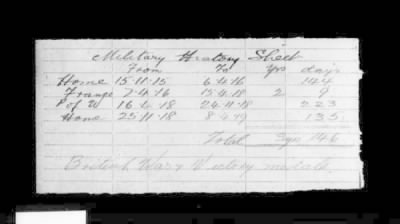 Military History Sheet
From To Yrs days
Home 15·11·15 6·4·16 144
France 7·4·16 15·4·18 2 9
P of W 16·4·18 24·11·18 223
Home 25·11·18 8·4·19 135
Total 3 yrs 146
British War & Victory medals